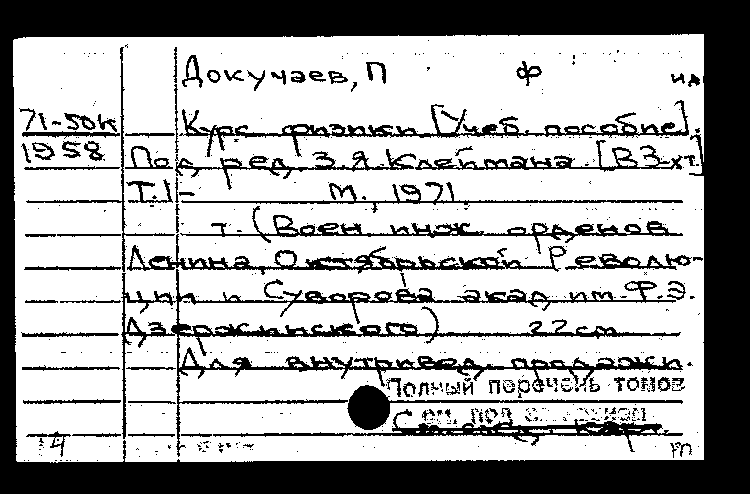 Докучаев, П ф
71-50к Курс физики [Учеб. пособие].
1958 Под ред. З.Я. Клеймана. [В 3-х т.]
Т. 1- М., 1971.
т. (Воен. инж. орденов
Ленина, Октябрьской Револю-
ции и Суворова акад. им. Ф.Э.
Дзержинского) 22 cm
Для внутривед. продажи.
Полный перечень томов
см. под
14 m